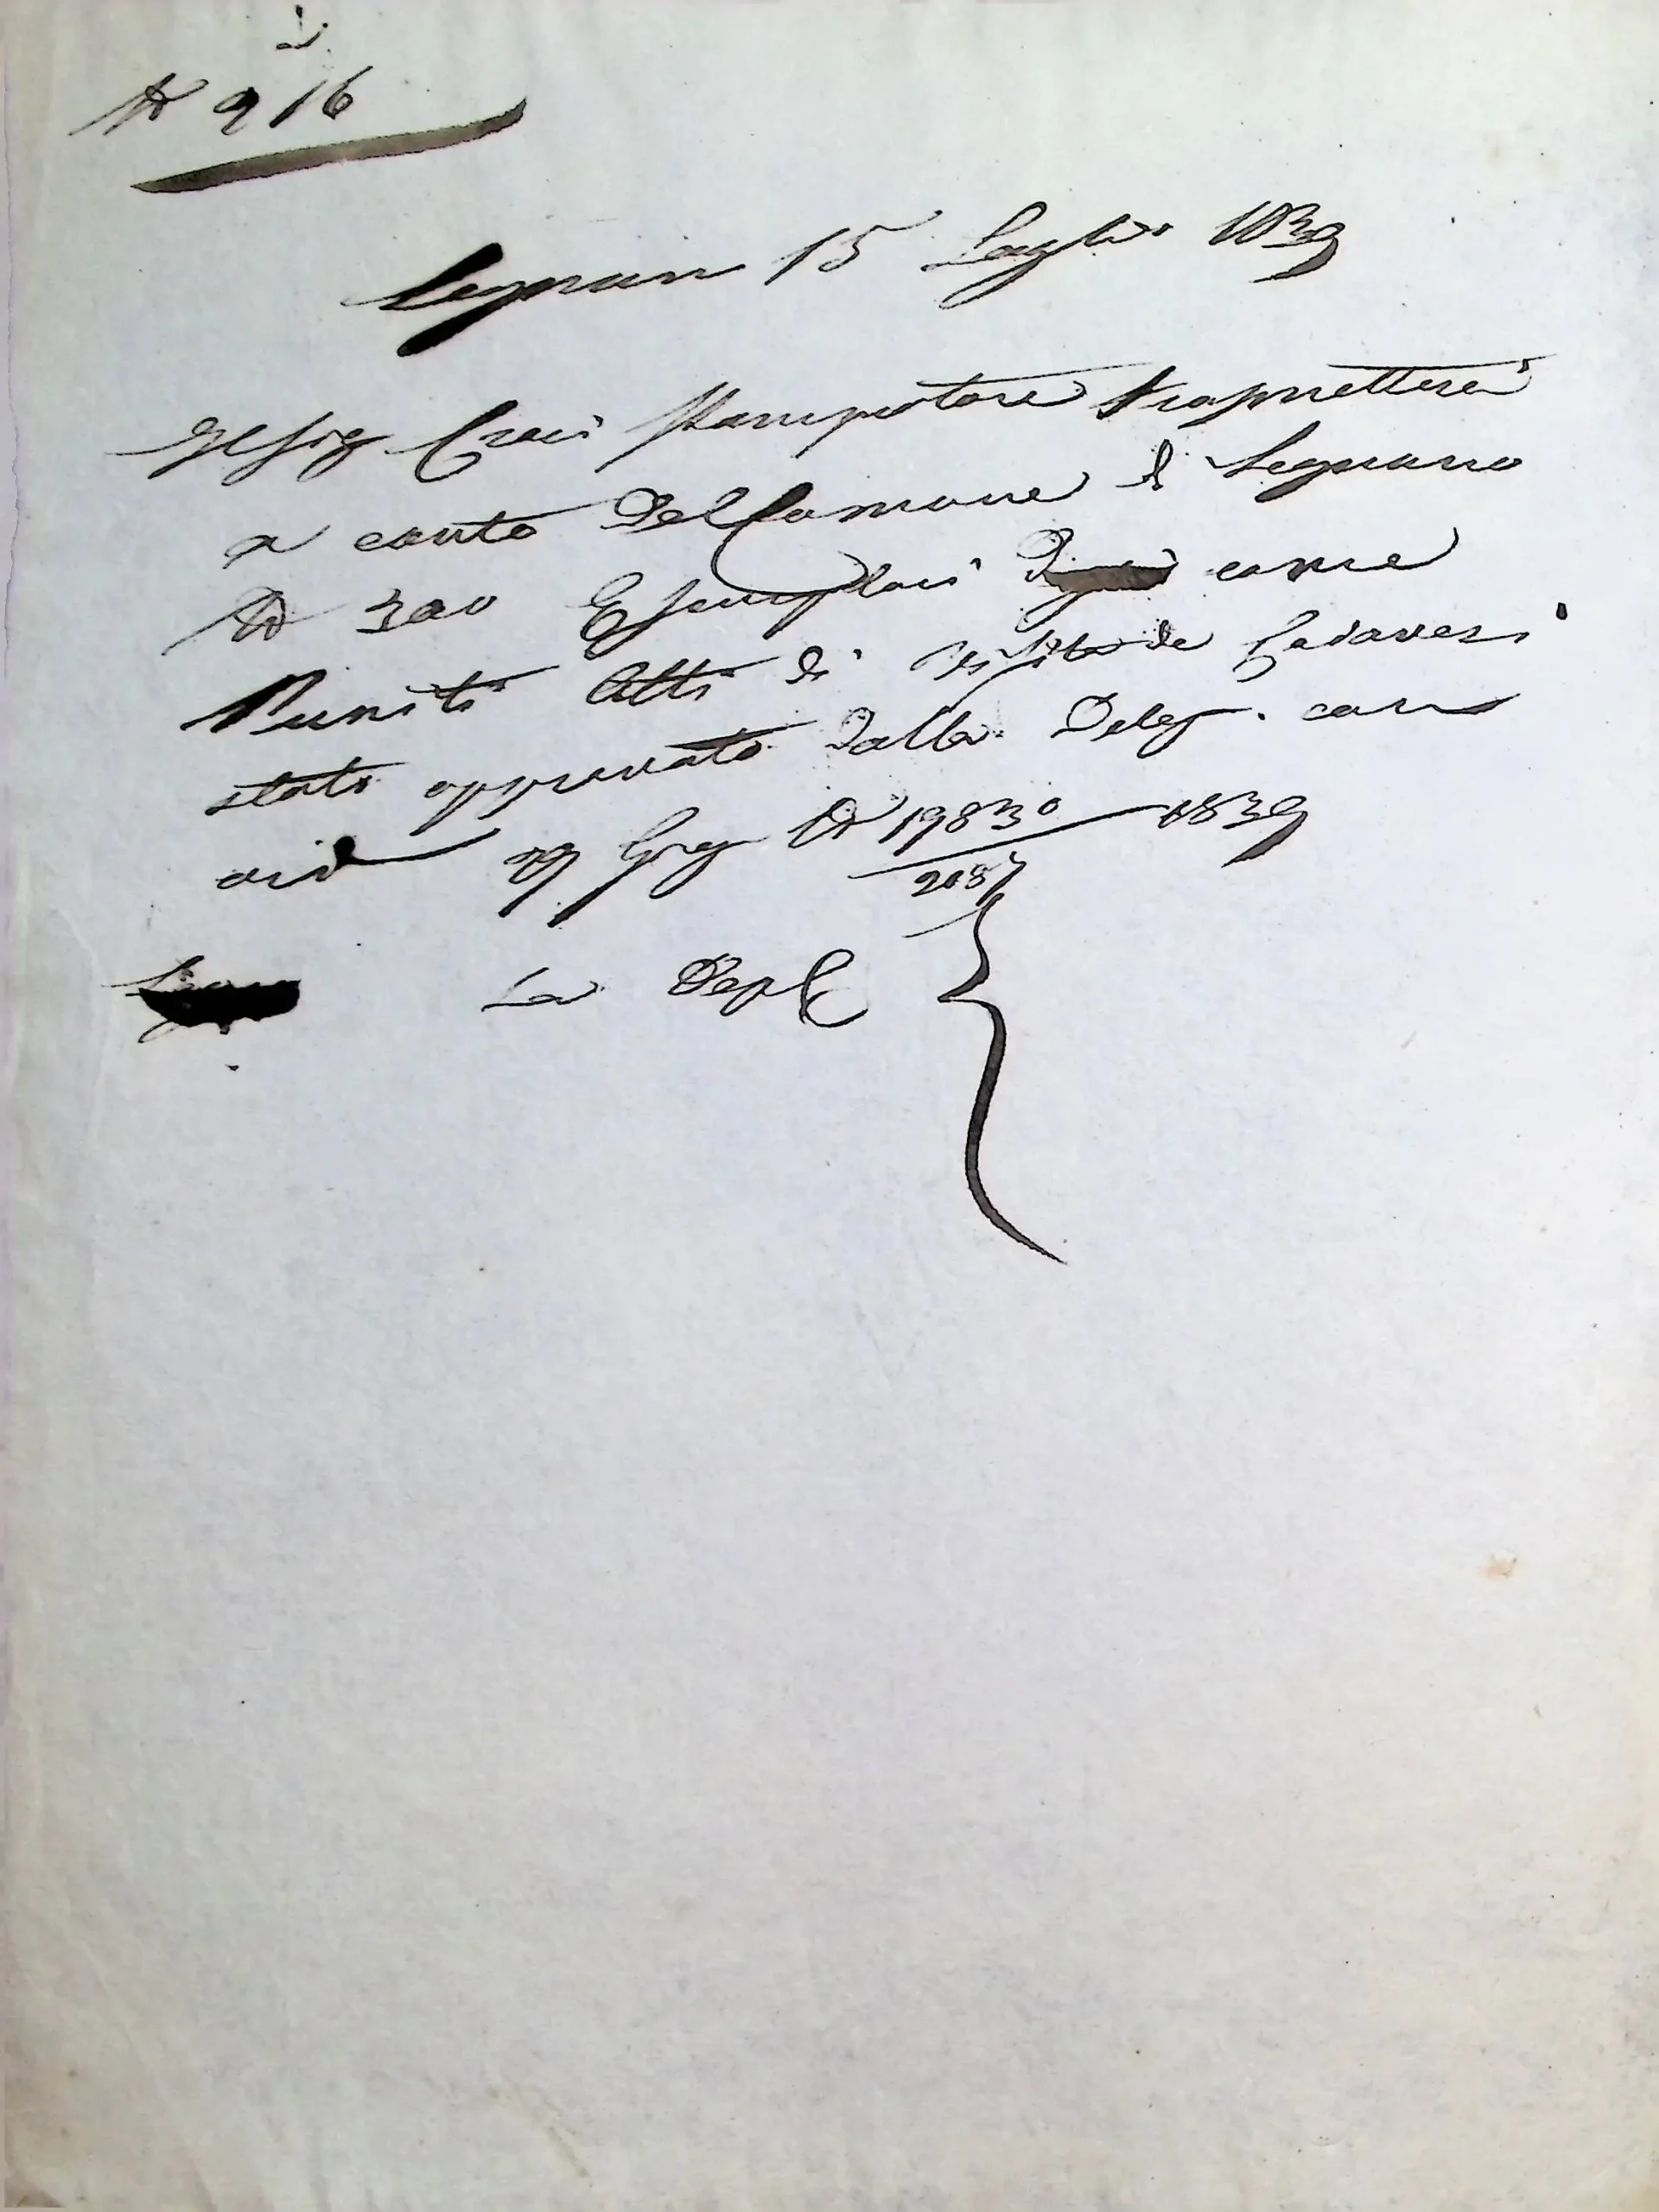 N 916
Legnano 15 Luglio 1839
Il Sig Croci Stampatore trasmetterà
a conto Del Comune di Legnano
N 300 Esemplari come
Uniti Atti di visita de Cadaveri
stato approvato dalla Deleg. con
ord 19830 1839
2087
La Dep